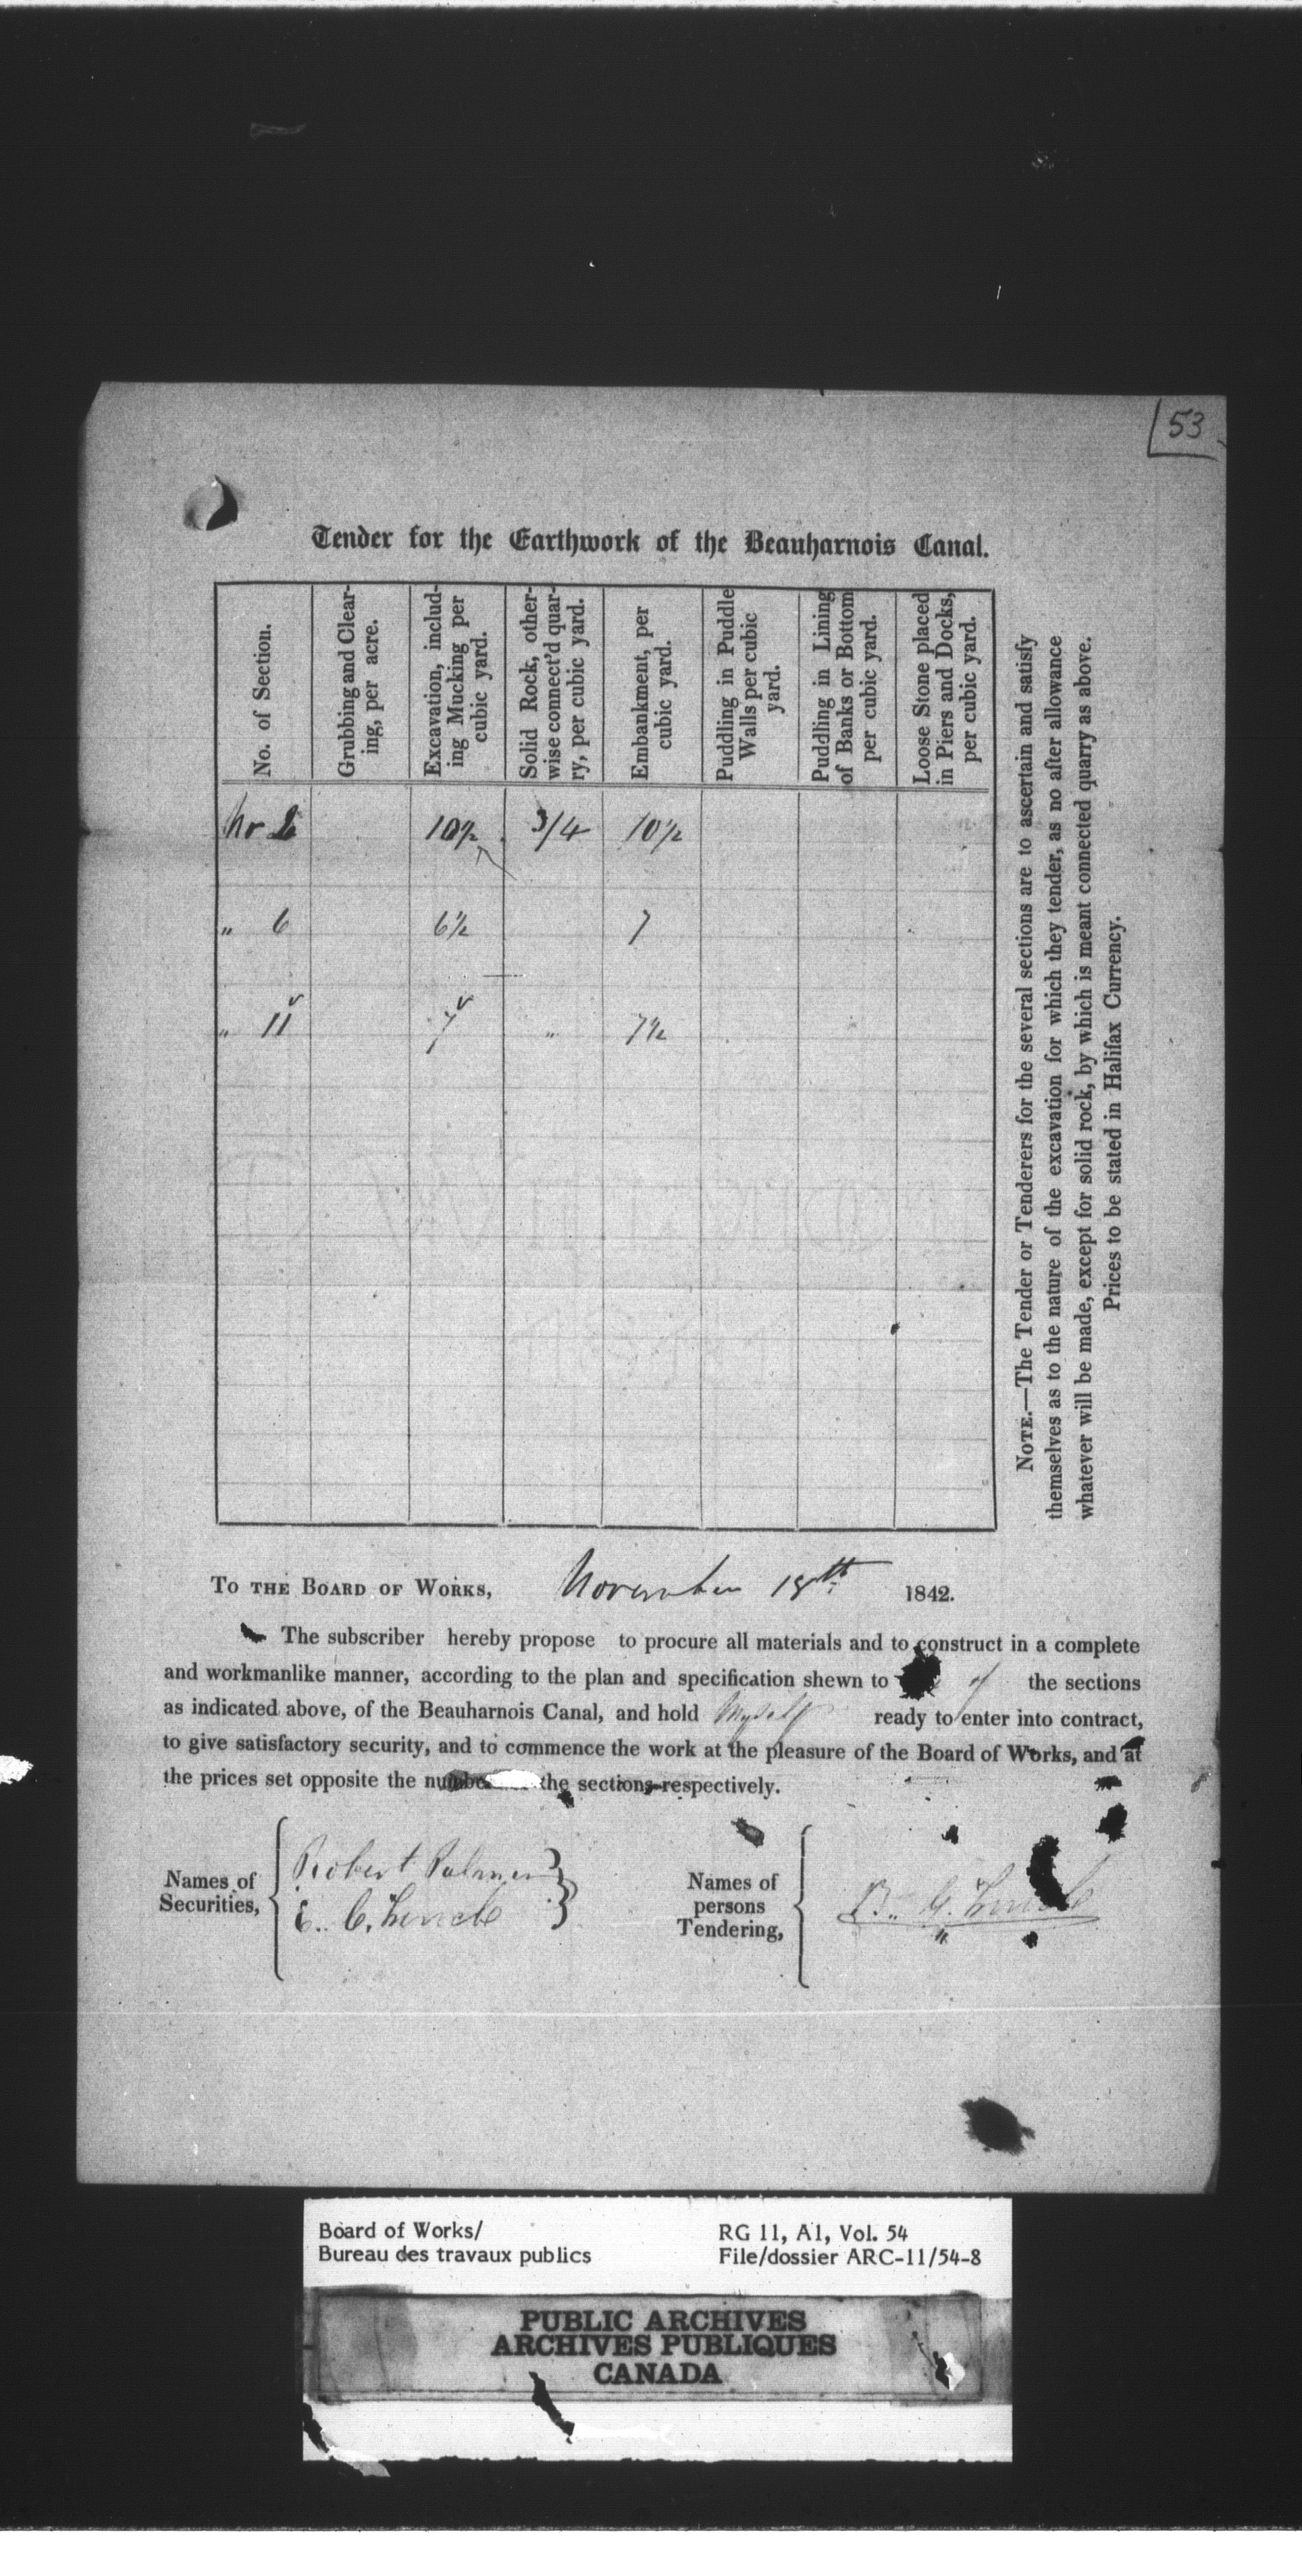 53
Tender for the Earthwork of the Beauharnois Canal.
No. of Section.
Grubbing and Clear-
ing, per acre.
Excavation, includ-
ing Mucking per
cubic yard.
Solid Rock, other-
wise connect'd quar-
ry, per cubic yard.
Embankment, per
cubic yard.
Puddling in Puddle
Walls per cubic
yard.
Puddling in Lining
of Banks or Bottom
per cubic yard.
Loose Stone placed
in Piers and Docks,
per cubic yard.
Nr 2 10½ 3/4 10½
„ 6 6½ 7
„ 11 7 „ 7½
NOTE.—The Tender or Tenderers for the several sections are to ascertain and satisfy
themselves as to the nature of the excavation for which they tender, as no after allowance
whatever will be made, except for solid rock, by which is meant connected quarry as above.
Prices to be stated in Halifax Currency.
TO THE BOARD OF WORKS, November 18th 1842.
The subscriber hereby propose to procure all materials and to construct in a complete
and workmanlike manner, according to the plan and specification shewn to of the sections
as indicated above, of the Beauharnois Canal, and hold Myself ready to enter into contract,
to give satisfactory security, and to commence the work at the pleasure of the Board of Works, and at
the prices set opposite the the sections respectively.
Names of
Securities,
Robert
E. C.
Names of
persons
Tendering,
B. G.
Board of Works/
Bureau des travaux publics
RG 11, A1, Vol. 54
File/dossier ARC-11/54-8
PUBLIC ARCHIVES
ARCHIVES PUBLIQUES
CANADA